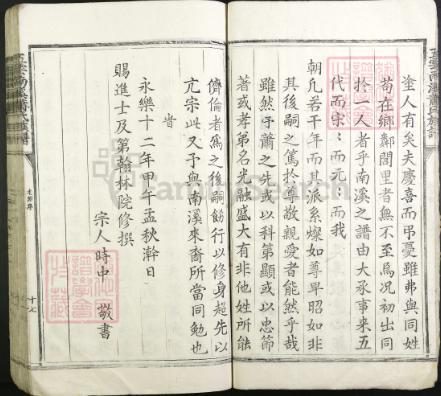 塗人有矣夫慶喜而弔憂雖弗與同姓
苟在鄉鄰閭里者無不至焉況初出同
於一人者乎南溪之譜由大承事來五
代而宗:而元:而我
朝凡若干年而其派系燦如尊卑昭如非
其後嗣之篤於尊敬親愛者能然乎哉
雖然于蕭之先或以科第顯或以忠節
著或孝弟名光融盛大有非他姓所能
儕倫者為之後嗣飭行以修身趨先以
亢宗此又予與南溪來裔所當同勉也
旹
永樂十二年甲午孟秋澣日
賜進士及第翰林院修撰
宗人時中 敬書
十七